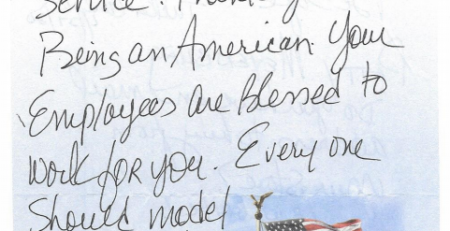 Service.
Being an American. Your
Employees are Blessed to
work for you. Every one
Should model